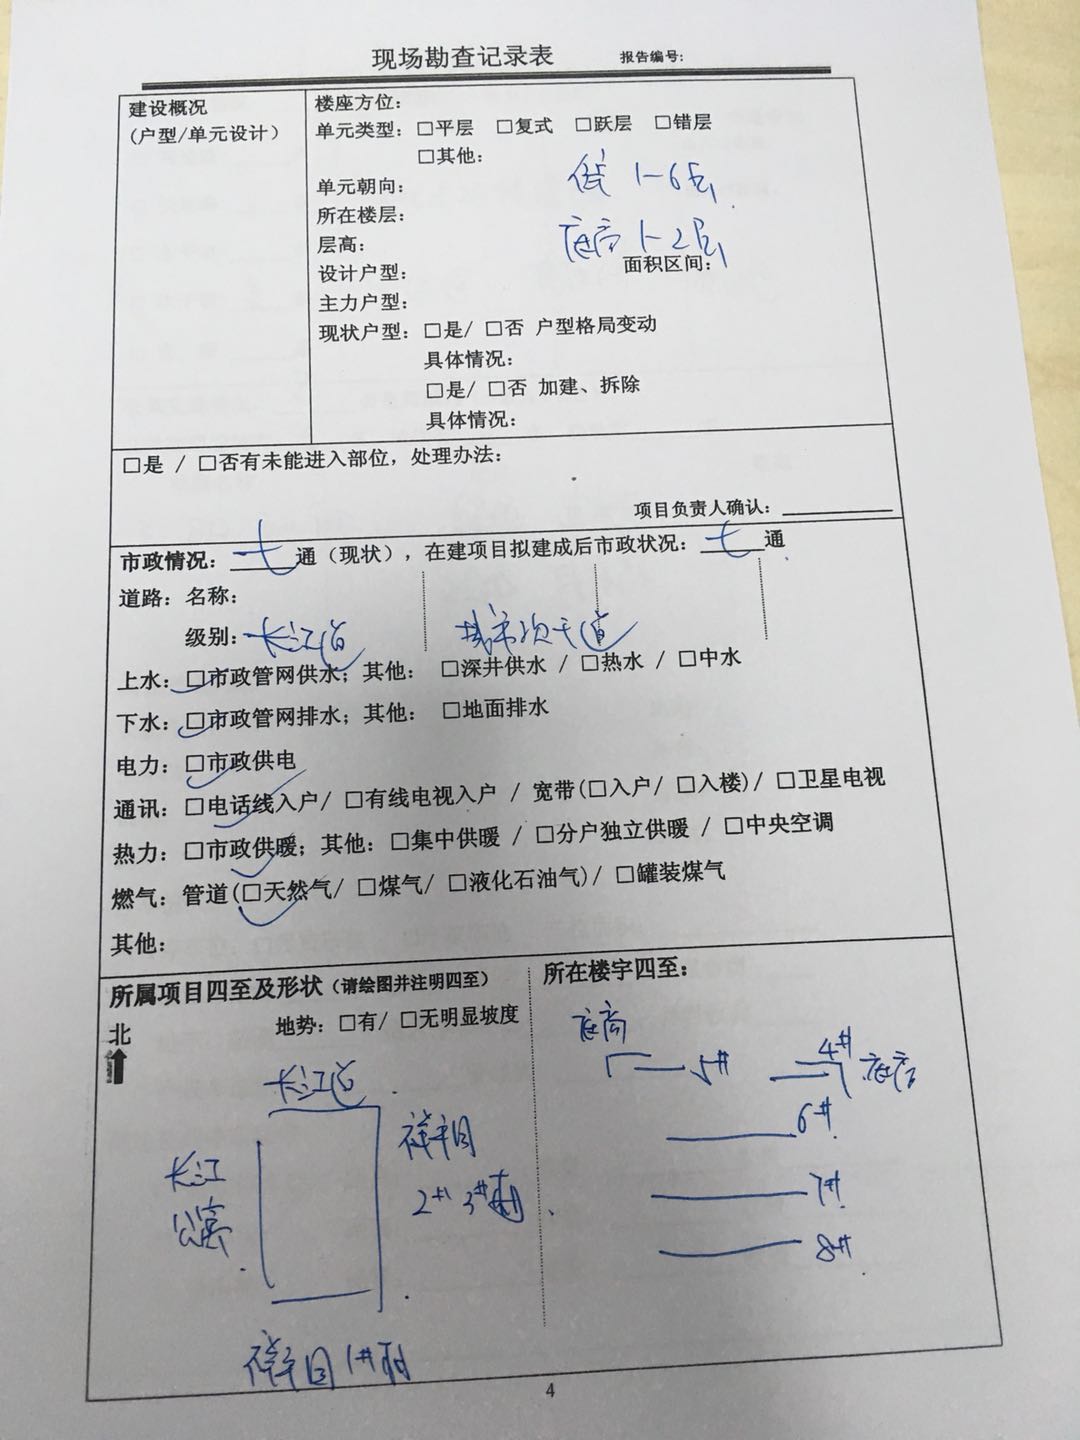 现场勘查记录表 报告编号:
建设概况
(户型/单元设计)
楼座方位:
单元类型: □平层 □复式 □跃层 □错层
□其他:
1-6层
单元朝向:
所在楼层:
底商 1-2层
层高:
设计户型: 面积区间:
主力户型:
现状户型: □是/ □否 户型格局变动
具体情况:
□是/ □否 加建、拆除
具体情况:
□是 / □否有未能进入部位, 处理办法:
项目负责人确认:
市政情况: 七 通 (现状), 在建项目拟建成后市政状况: 七 通
道路: 名称:
级别: 长江道 城市次干道
上水: □市政管网供水; 其他: □深井供水 / □热水 / □中水
下水: □市政管网排水; 其他: □地面排水
电力: □市政供电
通讯: □电话线入户/ □有线电视入户 / 宽带(□入户/ □入楼)/ □卫星电视
热力: □市政供暖; 其他: □集中供暖 / □分户独立供暖 / □中央空调
燃气: 管道(□天然气/ □煤气/ □液化石油气)/ □罐装煤气
其他:
所属项目四至及形状 (请绘图并注明四至)
地势: □有/ □无明显坡度
北
长江道
长江
公寓
2# 3#
1#
所在楼宇四至:
底商
5#
4# 底商
6#
7#
8#
4